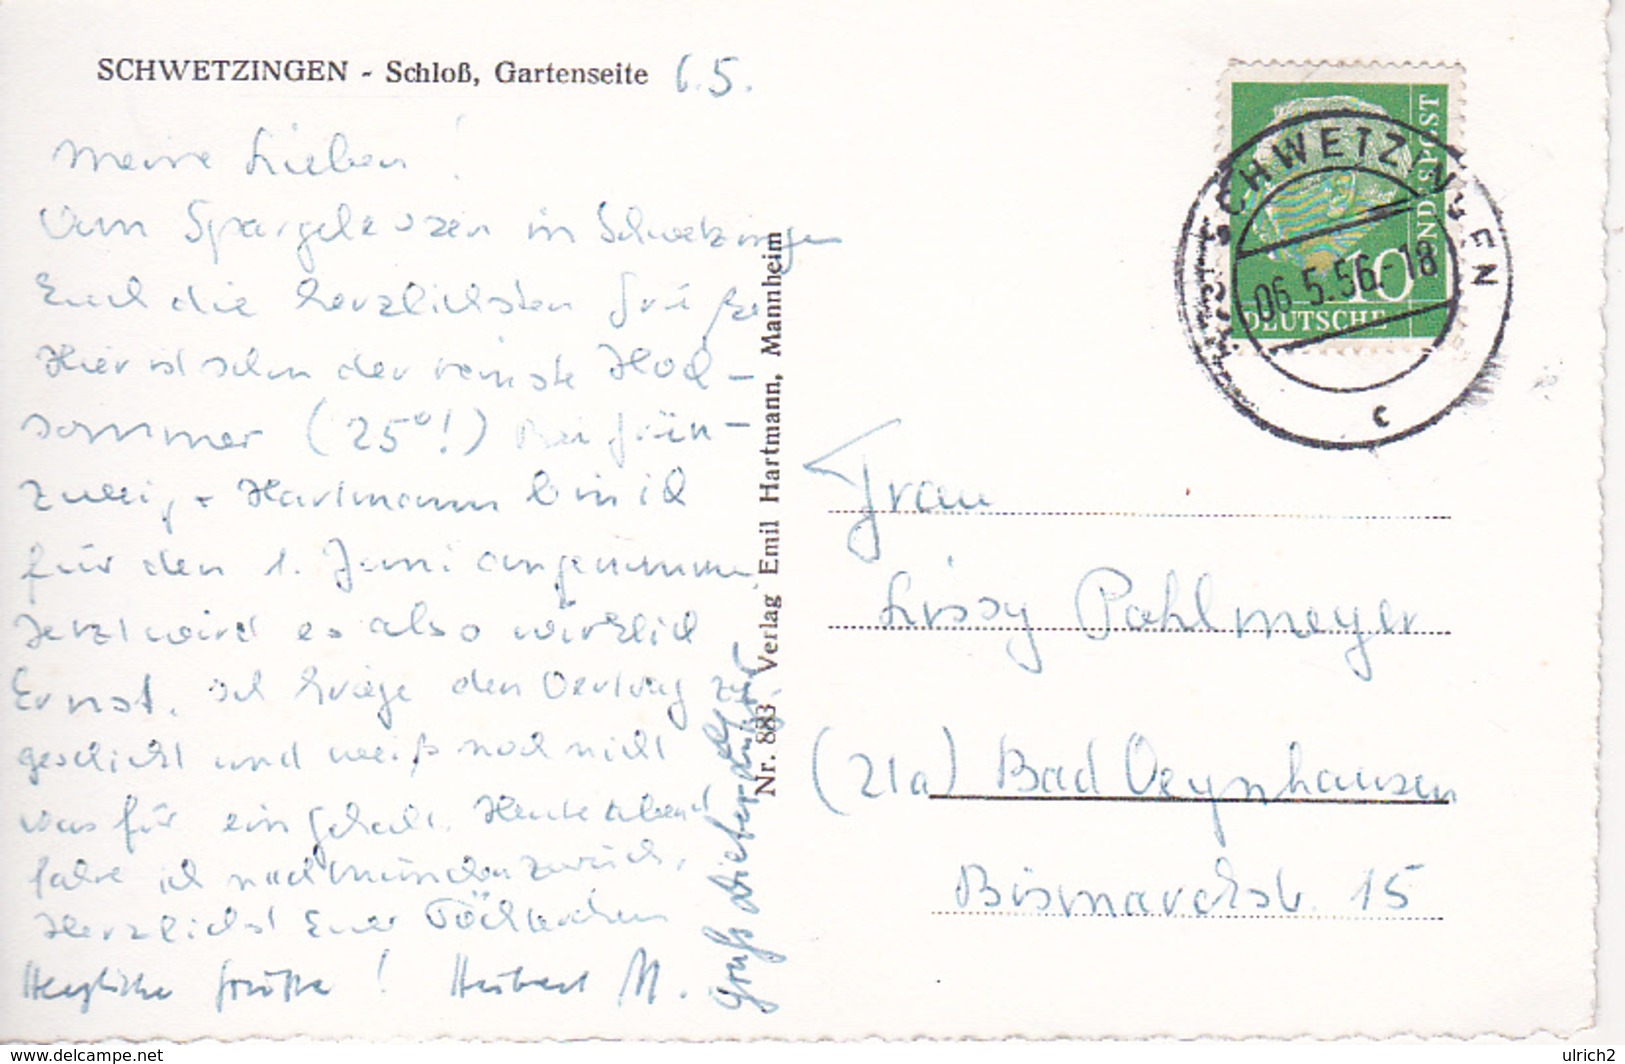 SCHWETZINGEN - Schloß, Gartenseite 6.5.
Meine Lieben!
Vom Spargelessen in Schwetzingen
Euch die herzlichsten Grüße
Hier ist schon der reinste Hoch-
sommer (25°!) Bei Grün-
zweig + Hartmann bin ich
für den 1. Juni angenommen
Jetzt wird es also wirklich
Ernst. Ich kriege den Vertrag zu-
geschickt und weiß noch nicht
was für ein Gehalt. Heute Abend
fahre ich nach München zurück.
Herzlichst Euer Töchterchen
Herzliche Grüße! Herbert M.
Gruß Dieter
Nr. 883 Verlag Emil Hartmann, Mannheim
SCHWETZINGEN
06.5.56.-18
c
10
DEUTSCHE
BUNDESPOST
Frau
Lissy Pohlmeyer
(21a) Bad Oeynhausen
Bismarckstr. 15
www.delcampe.net
ulrich2